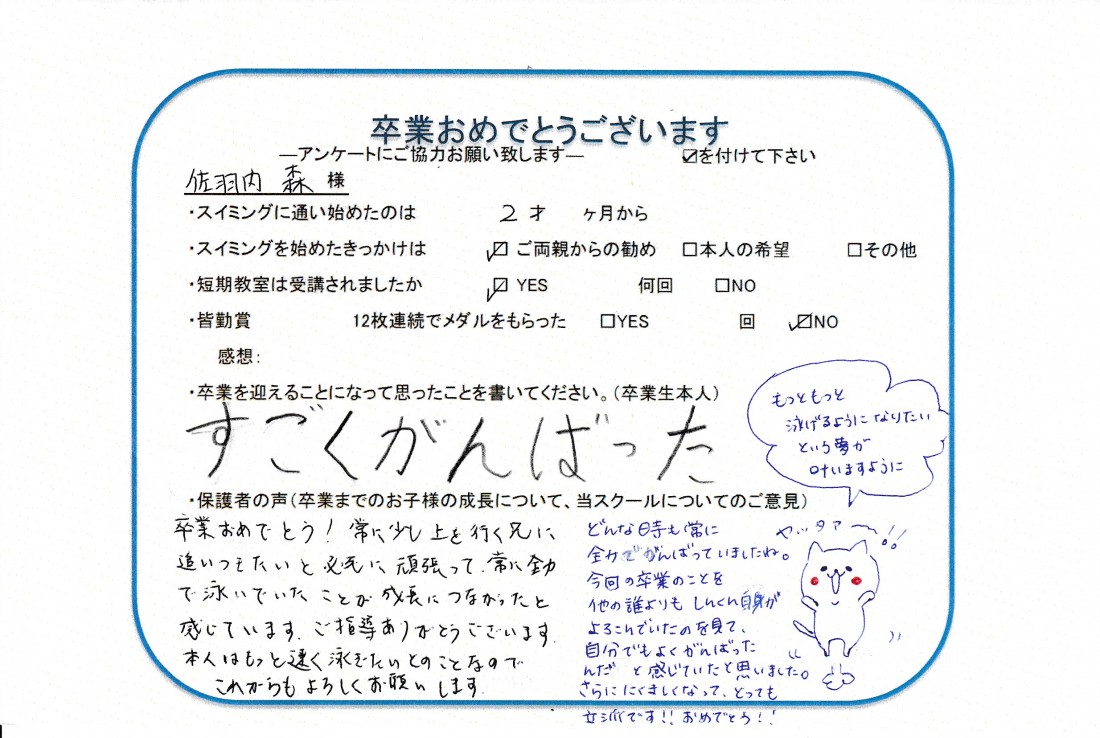 卒業おめでとうございます
―アンケートにご協力お願い致します― ☑を付けて下さい
佐羽内 森 様
・スイミングに通い始めたのは 2才 ヶ月から
・スイミングを始めたきっかけは ☑ご両親からの勧め □本人の希望 □その他
・短期教室は受講されましたか ☑YES 何回 □NO
・皆勤賞 12枚連続でメダルをもらった □YES 回 ☑NO
感想：
・卒業を迎えることになって思ったことを書いてください。（卒業生本人）
すごくがんばった
もっともっと
泳げるようになりたい
という夢が
叶いますように
・保護者の声（卒業までのお子様の成長について、当スクールについてのご意見）
卒業おめでとう！常に少し上を行く兄に
追いつきたいと必死に頑張って、常に全力
で泳いでいたことが成長につながったと
感じています。ご指導ありがとうございます。
本人はもっと速く泳ぎたいとのことなので
これからもよろしくお願いします。
どんな時も常に
全力でがんばっていましたね。
今回の卒業のことを
他の誰よりもしんくん自身が
よろこんでいたのを見て、
自分でもよくがんばった
んだ と感じていたと思いました。
さらに たくましくなって、とっても
立派です!!おめでとう!!
ヤッタァー!!